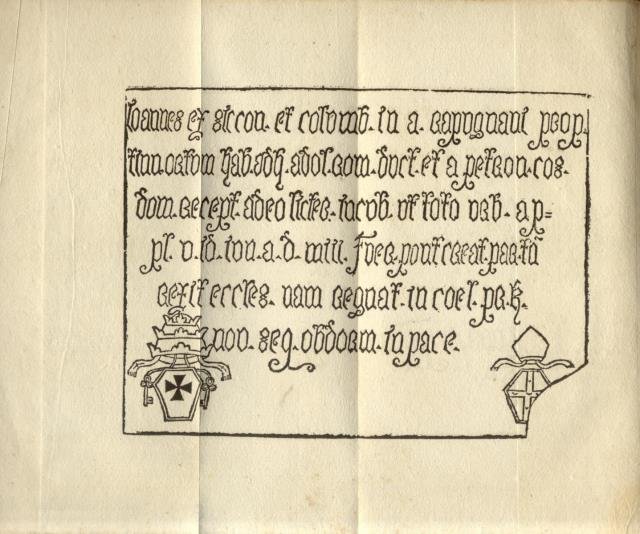 Ioannes ex siccon. et colomb. in a. rapugnani prop.
tinn. ortum hab. adh. adol. rom. duct. et a petron. cos.
dom. recept. adeo licter. incub. ut toto urb. ap=
pl. v. id. iun. a. d. miii. fuer. pontif. creat. par. tm̃
rexit eccles. nam regnat. in coel. pr. k.
nov. seq. obdorm. in pace.